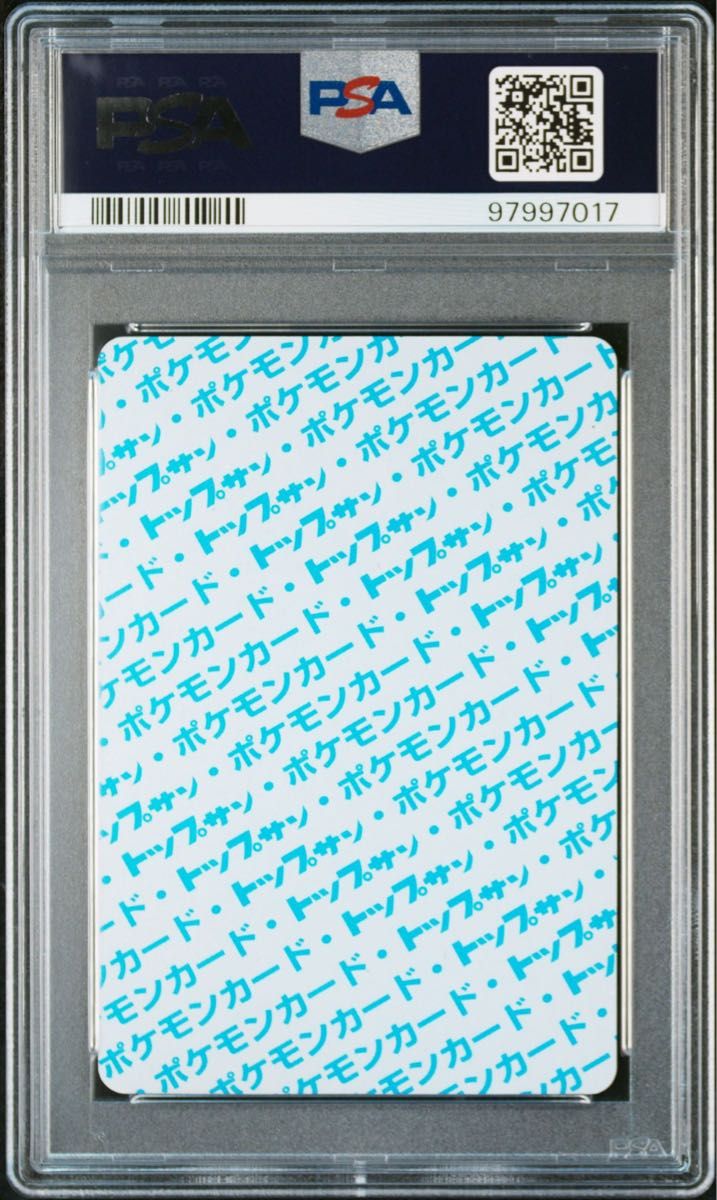 PSA PSA PSA
PSA
PSA PSA PSA
PSA
97997017
ポケモ
・ポケモン
・ポケモンカ
プサン・ポケモンカ
トップサン・ポケモンカード
・トップサン・ポケモンカード
ード・トップサン・ポケモンカ
ンカード・トップサン・ポケモ
ケモンカード・トップサン・ポケ
・ポケモンカード・トップサン・
サン・ポケモンカード・トップサ
ップサン・ポケモンカード・トッ
・トップサン・ポケモンカード・
ード・トップサン・ポケモンカー
カード・トップサン・ポケモン
モンカード・トップサン・ポケ
ポケモンカード・トップサン・
・ポケモンカード・トップサ
ポケモンカード・トッ
ポケモンカード・
ポケモンカード
ンカー
PSA